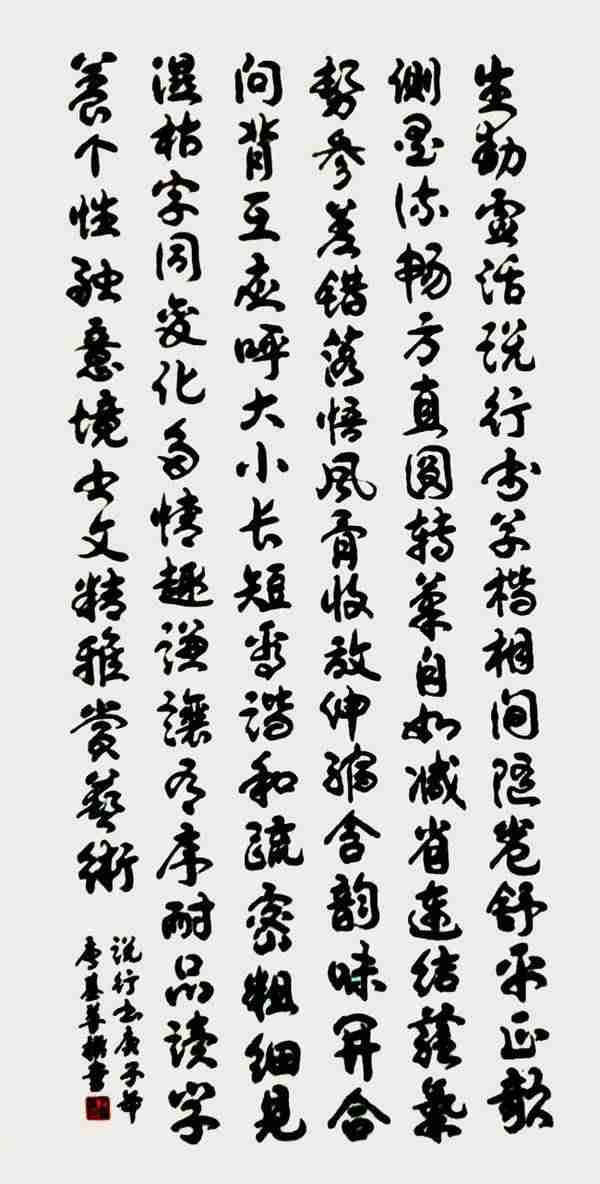 生动灵活说行书草楷相间随卷舒平正欹
侧墨流畅方直圆转笔自如减省连结蕴气
势参差错落悟风骨收放伸缩含韵味开合
向背互应呼大小长短谐和疏密粗细见
湿枯字同变化多情趣谦让有序耐品读学
养个性融意境书文精雅赏艺术
说行书庚子
撰书